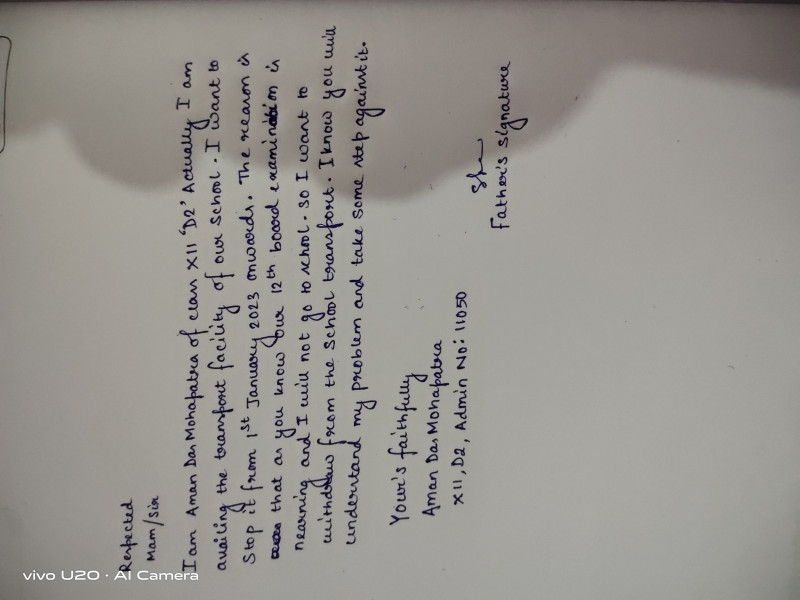 Respected
Mam/Sir
I am Aman Das Mohapatra of class XII 'D2' Actually I am
availing the transport facility of our school. I want to
Stop it from 1st January 2023 onwards. The reason is
that as you know our 12th board examination is
nearning and I will not go to school. so I want to
withdraw from the school transport. I know you will
understand my problem and take some step against it.
Your's faithfully
Aman Das Mohapatra
XII, D2, Admin No: 11050
Father's signature
vivo U20 · AI Camera